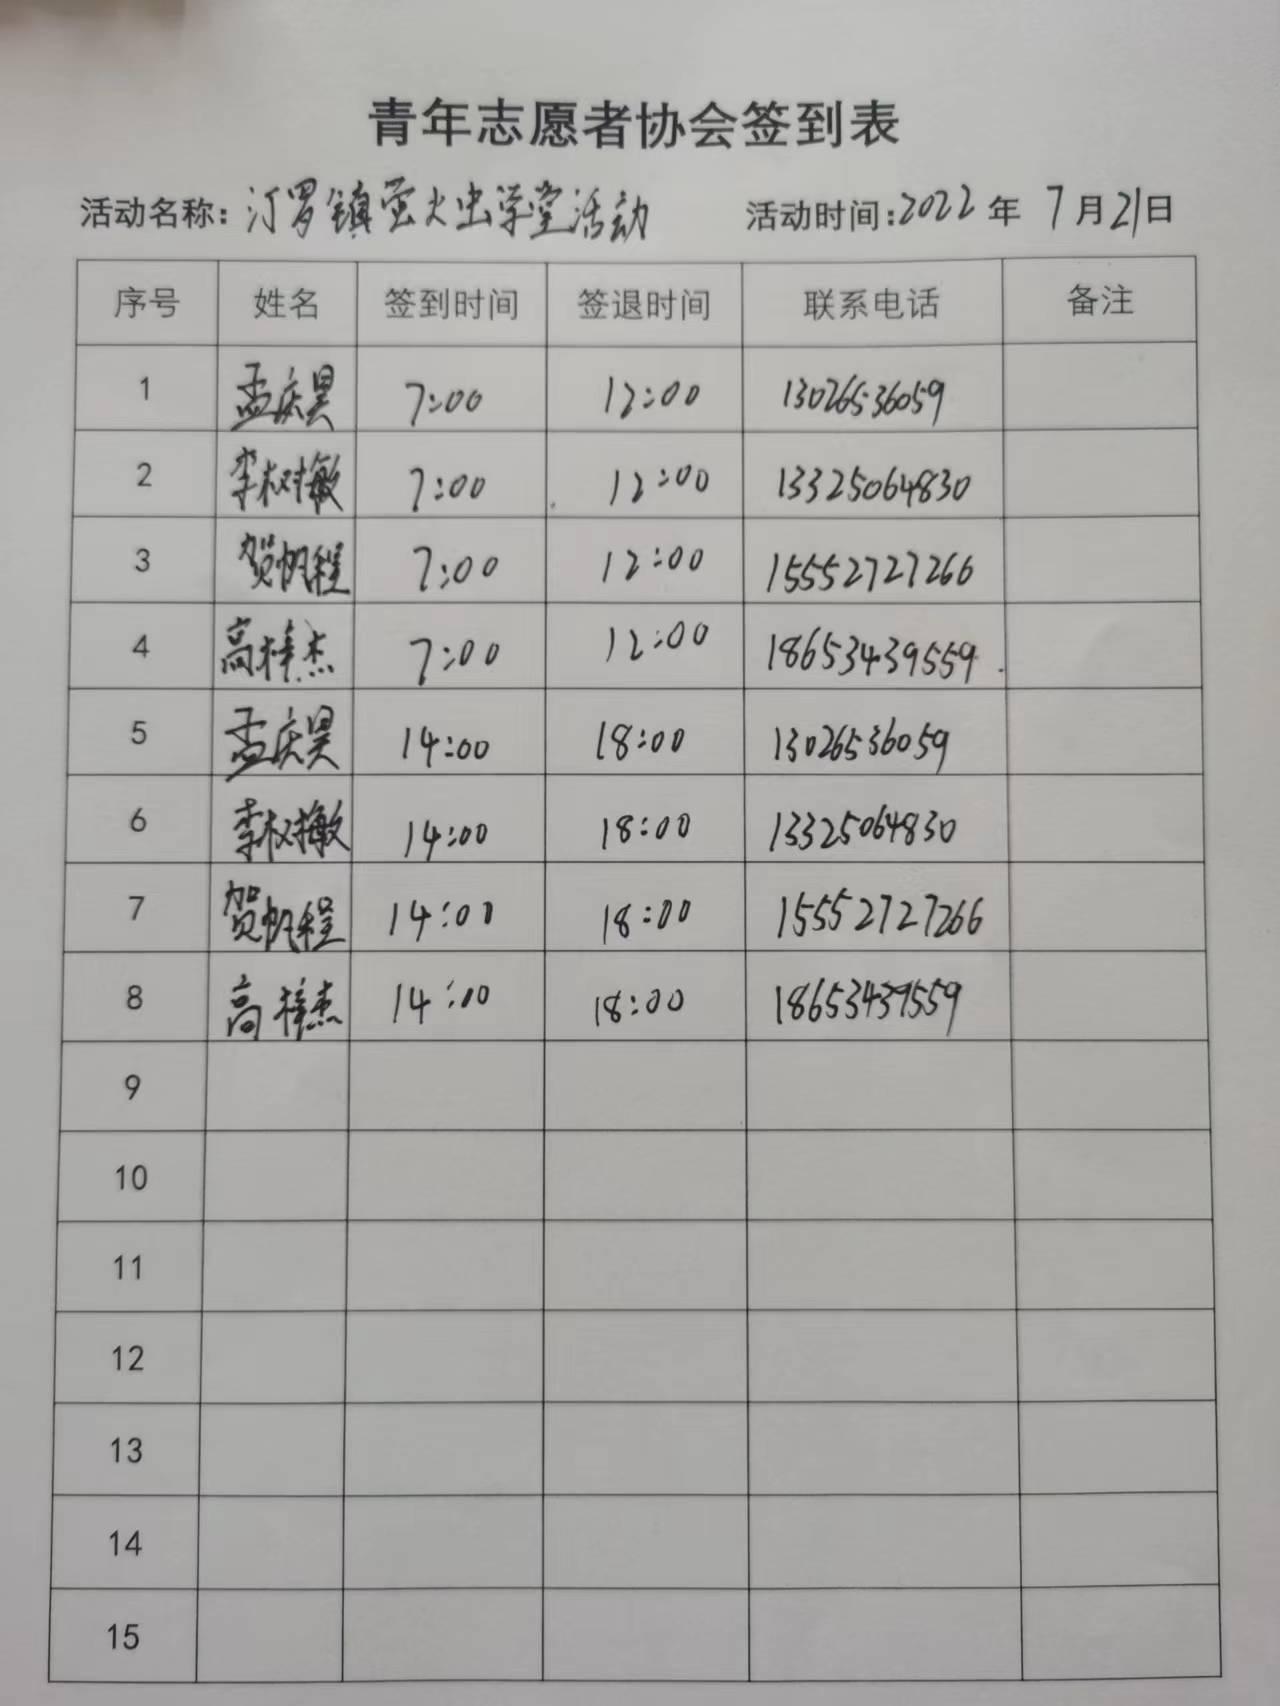 青年志愿者协会签到表
活动名称：汀罗镇萤火虫学堂活动 活动时间：2022年 7月21日
序号 姓名 签到时间 签退时间 联系电话 备注
1 孟庆昊 7:00 12:00 13026536059
2 李树敏 7:00 12:00 13325064830
3 贺帆程 7:00 12:00 15552727266
4 高梓杰 7:00 12:00 18653439559
5 孟庆昊 14:00 18:00 13026536059
6 李树敏 14:00 18:00 13325064830
7 贺帆程 14:00 18:00 15552727266
8 高梓杰 14:00 18:00 18653439559
9
10
11
12
13
14
15